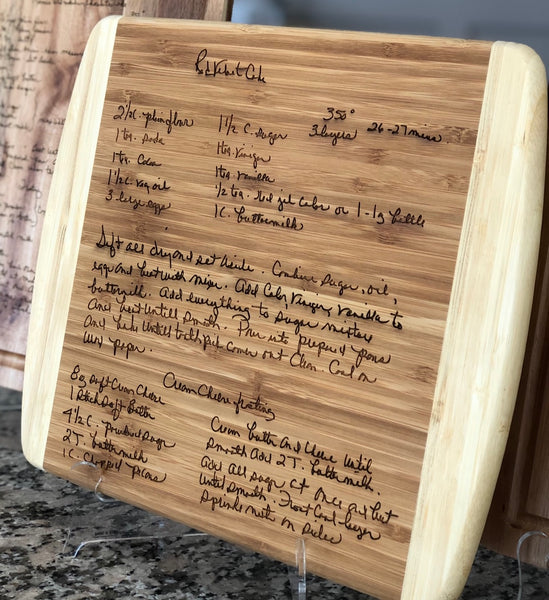 Red Velvet Cake
350°
3 layers 26-27 mins.
2½ C. plain flour
1 tsp. soda
1 tsp. Cocoa
1½ C. Veg oil
3 large eggs
1½ C. Sugar
1 tsp. Vinegar
1 tsp. Vanilla
½ tsp. Red gel color or 1-1oz bottle
1 C. buttermilk
Sift all dry and set aside. Combine sugar, oil,
eggs and beat with mixer. Add Color, Vinegar, Vanilla to
buttermilk. Add everything to sugar mixture
And beat until smooth. Pour into prepared pans
And bake until toothpick comes out Clean. Cool on
wax paper.
Cream Cheese frosting
8 oz Soft Cream Cheese
1 Stick Soft Butter
4½ C. powdered Sugar
2 T. buttermilk
1 C. Chopped pecans
Cream butter And Cheese Until
Smooth Add 2 T. buttermilk.
Add All sugar at once and beat
Until Smooth. Frost Cool layers
Sprinkle nuts on sides